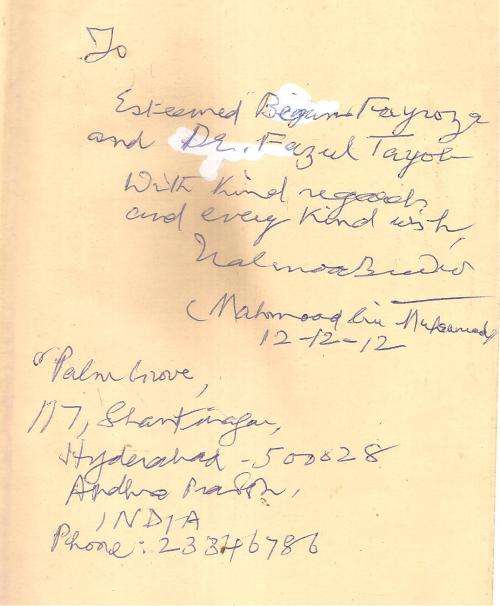 To
Esteemed Begum Fayroza
and Dr. Fazul Tayob
With kind regards
and every kind wish,
(Mahmood bin Muhammad)
12-12-12
"Palm Grove,
117, Shantinagar,
Hyderabad - 500028
Andhra Pradesh,
INDIA
Phone: 23346786